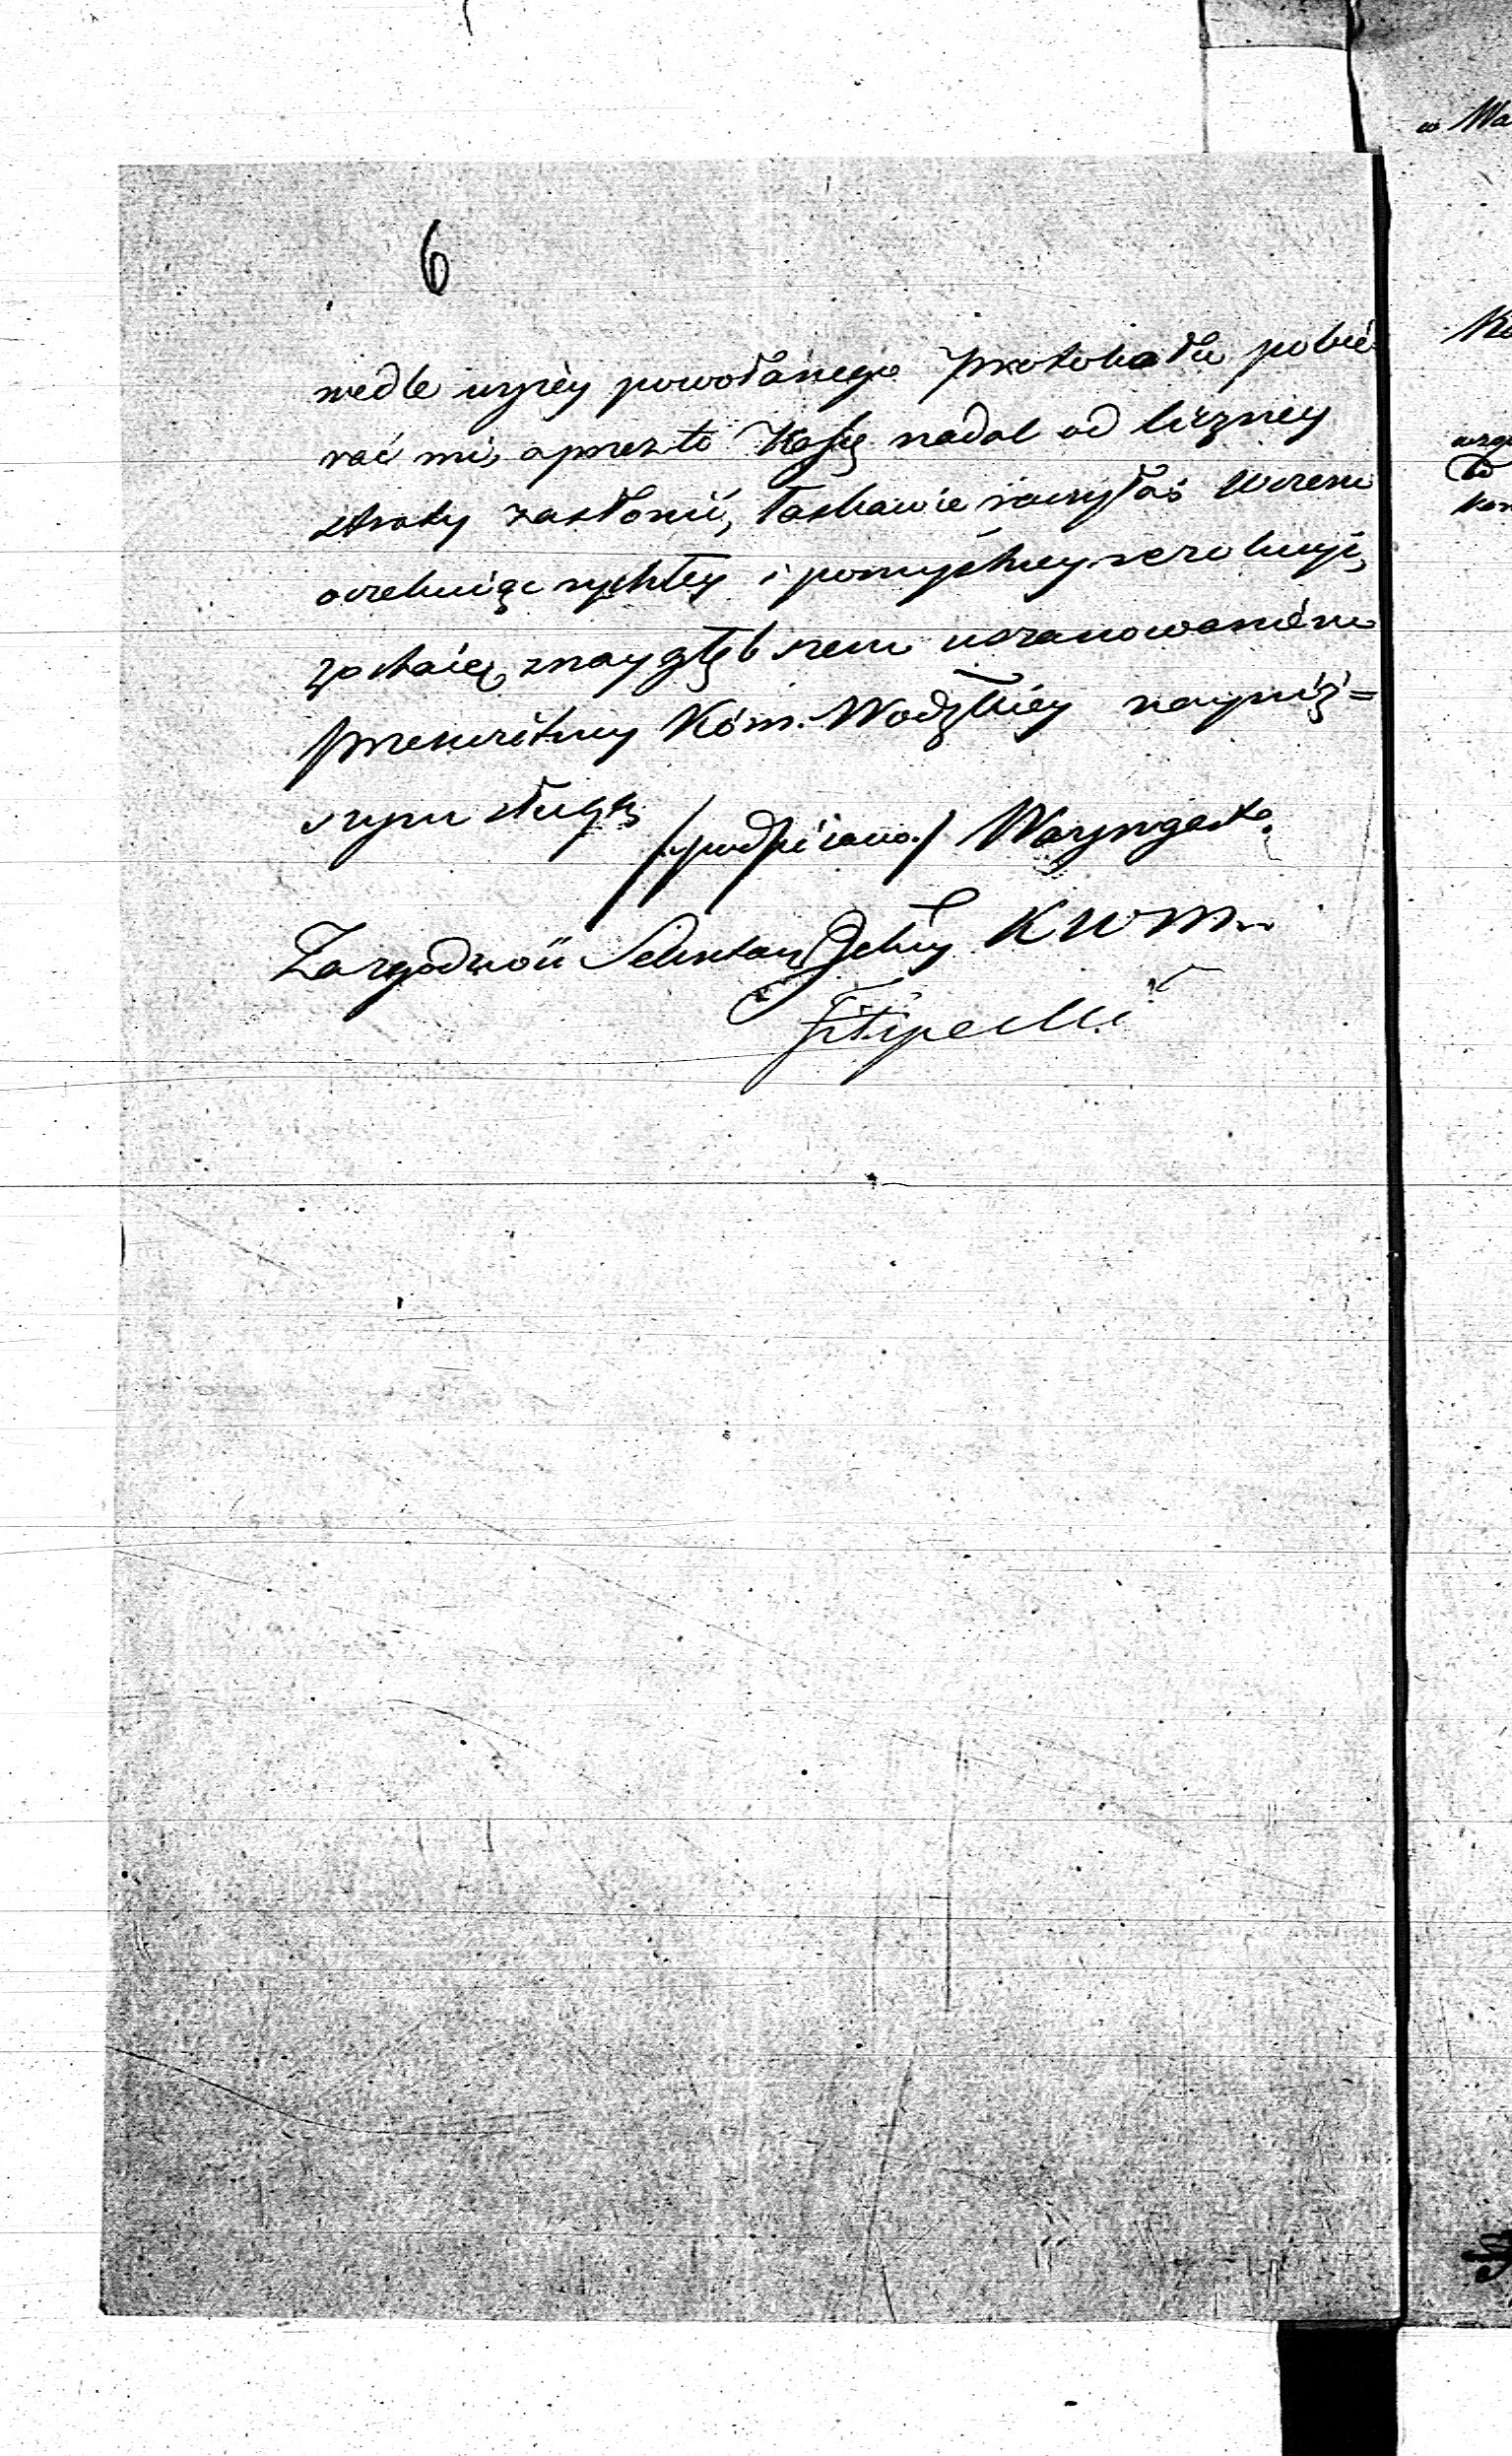 6
wedle wyżey powołanego Protokołu pobié-
rać mi, a przez to Kassę nadal od liczney
straty zasłonić, łaskawie raczyłaś wczem
oczekuiąc rychłey i pomyślney rezolucyi,
zostaię z naygłębszem uszanowaniem
Prześwitney Kóm. Wodzkiéy nayniż=
szym sługą
/:podpisano:/ Waryngesko
Za zgodność Sekretarz Jelny KWM
Filipecki
w Wa